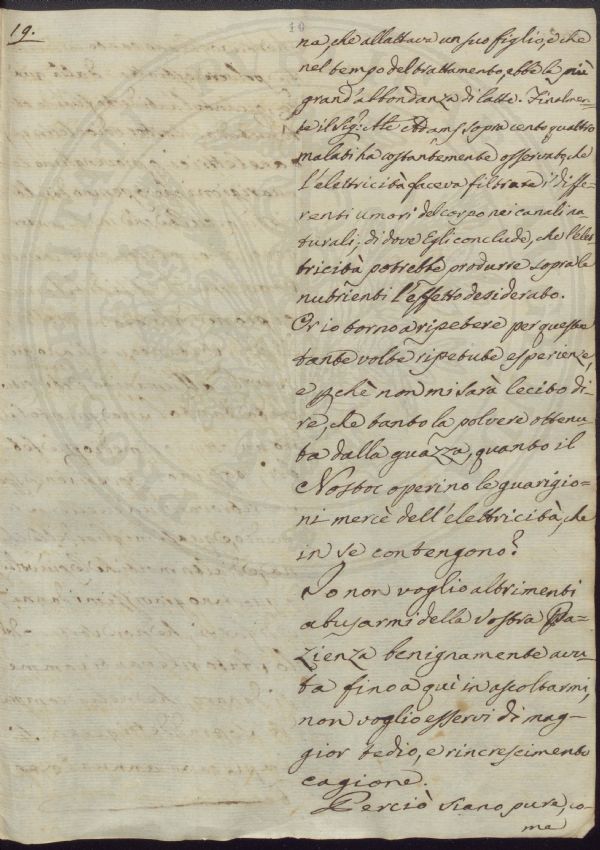 19.
10
na, che allattava un suo figlio, e che
nel tempo del trattamento, ebbe la più
grand'abbondanza di latte. Finalmen-
te il Sig.r Ate Adams sopra cento quattro
malati ha costantemente osservato, che
l'elettricità faceva filtrare i diffe-
renti umori del corpo nei canali na-
turali; di dove Egli conclude, che l'elet-
tricità potrebbe produrre sopra le
nutrienti l'effetto desiderato.
Or io torno a ripetere per queste
tante volte ripetute esperienze,
e pchè non mi sarà lecito di-
re, che tanto la polvere ottenu-
ta dalla guazza, quanto il
Nostoc operino le guarigio-
ni mercè dell'elettricità, che
in se contengono?
Io non voglio altrimenti
abusarmi della Vostra Pa-
zienza benignamente avu-
ta fino a quì in ascoltarmi,
non voglio esservi di mag-
gior tedio, e rincrescimento
cagione.
Perciò siano pure, co-
me